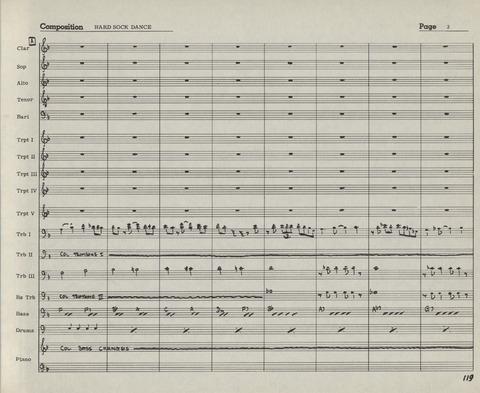 Composition HARD SOCK DANCE Page 2
Clar
Sop
Alto
Tenor
Bari
Trpt I
Trpt II
Trpt III
Trpt IV
Trpt V
Trb I
Trb II COL TROMBONE I
Trb III
Bs Trb COL TROMBONE III
Bass
Drums
COL BASS CHANGES
Piano
119